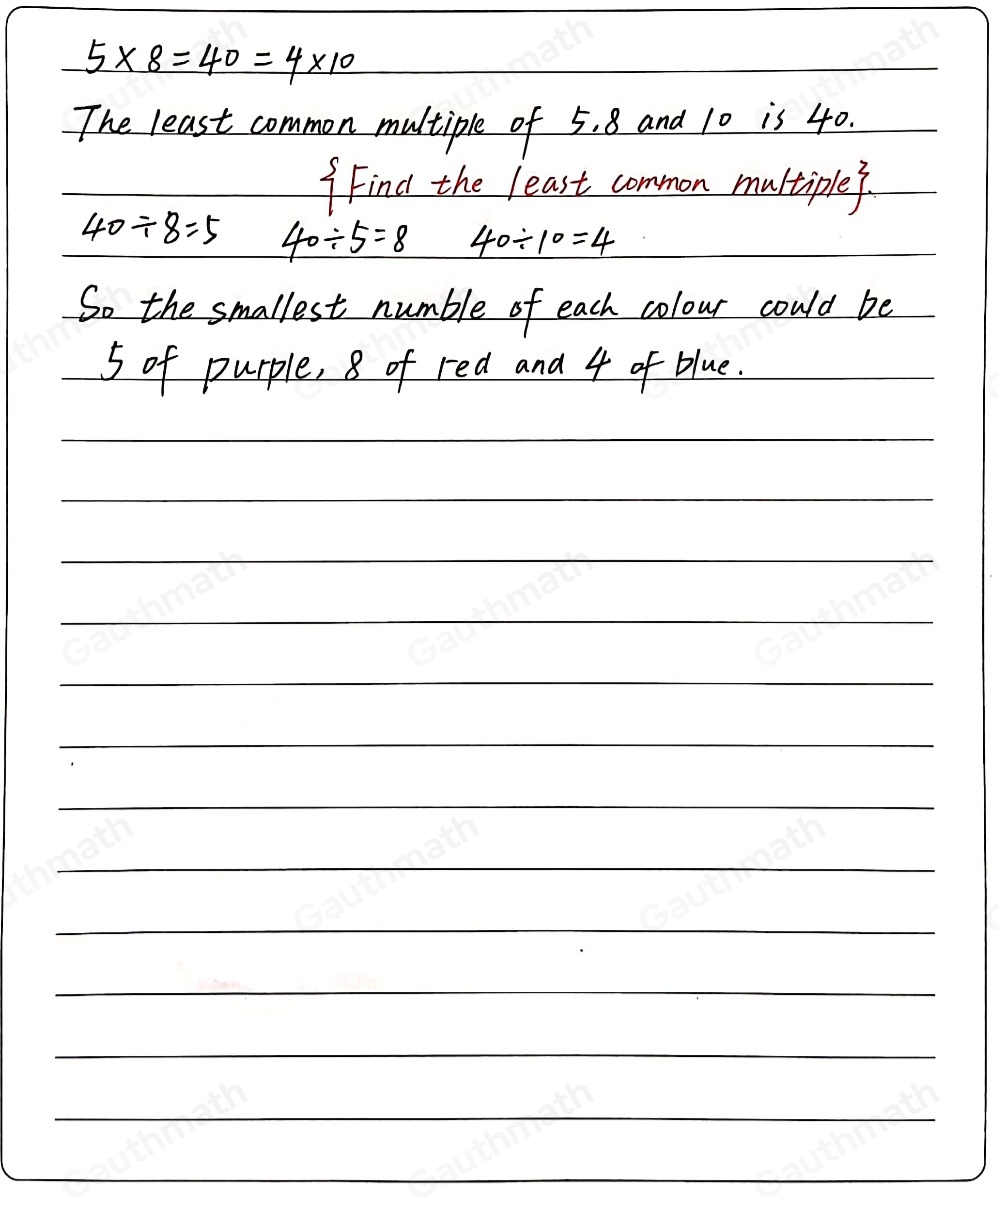 5×8=40=4×10
The least common multiple of 5.8 and 10 is 40.
{Find the least common multiple}.
40÷8=5 40÷5=8 40÷10=4
So the smallest numble of each colour could be
5 of purple, 8 of red and 4 of blue.
Gauthmath